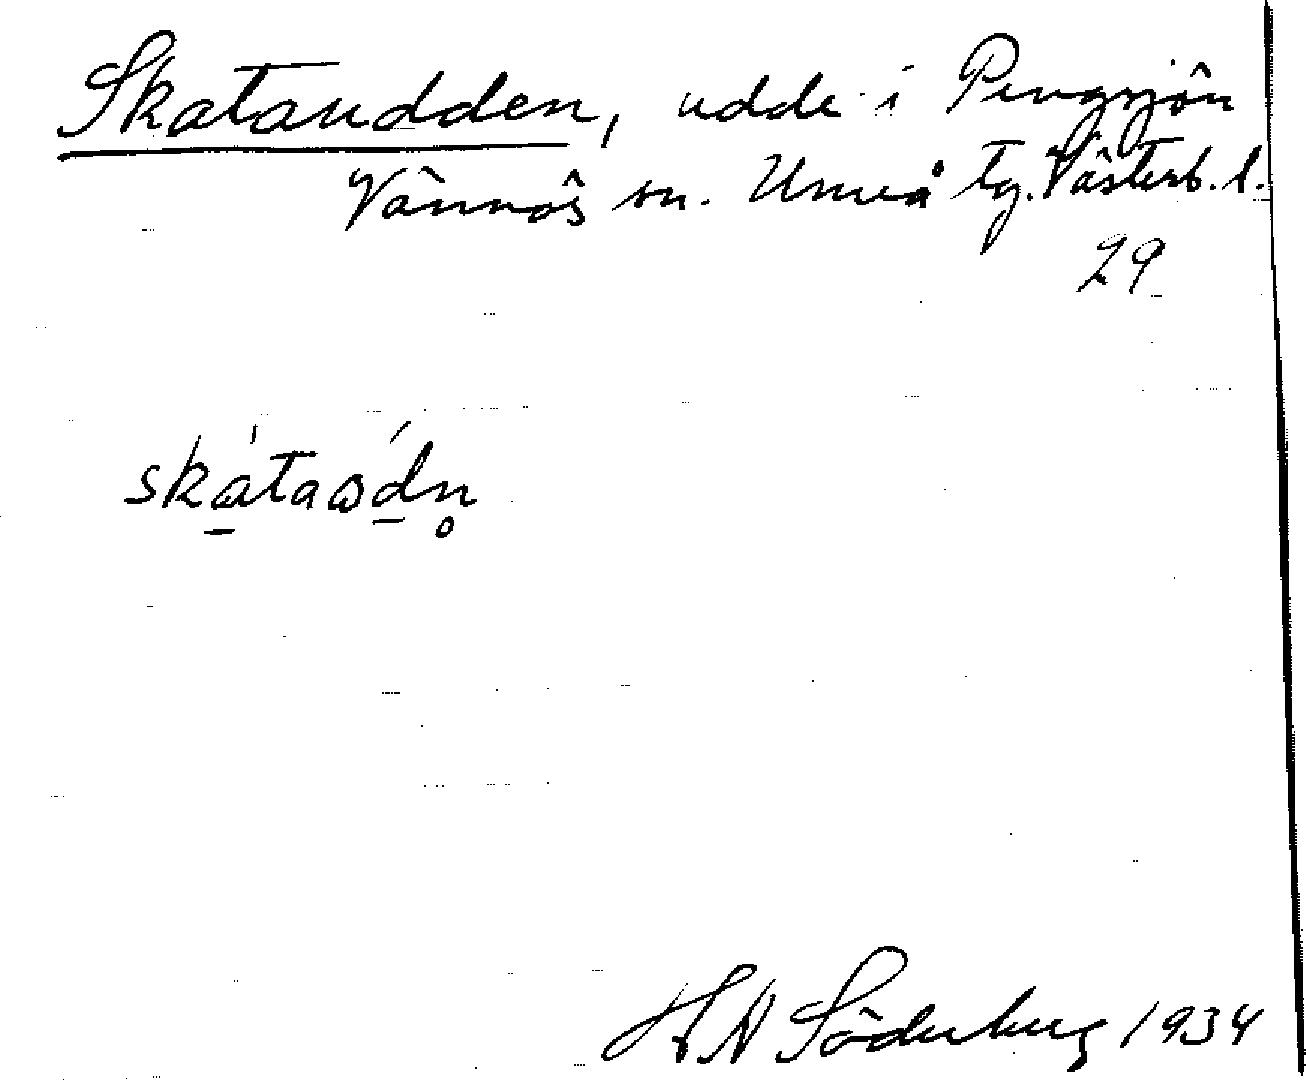 Skataudden, udde i Pengsjön
Vännäs sn. Umeå tg. Västerb. l.
29
skátaωdn̥
H N Söderberg 1934